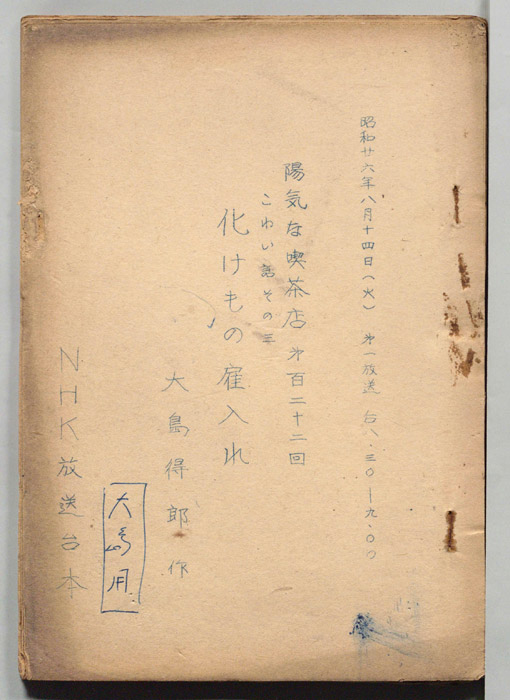 昭和廿六年八月十四日（火） 第一放送 后八・三〇―九・〇〇
陽気な喫茶店 第百二十二回
こわい話その三
化けもの雇入れ
大島得郎 作
大島用
NHK放送台本